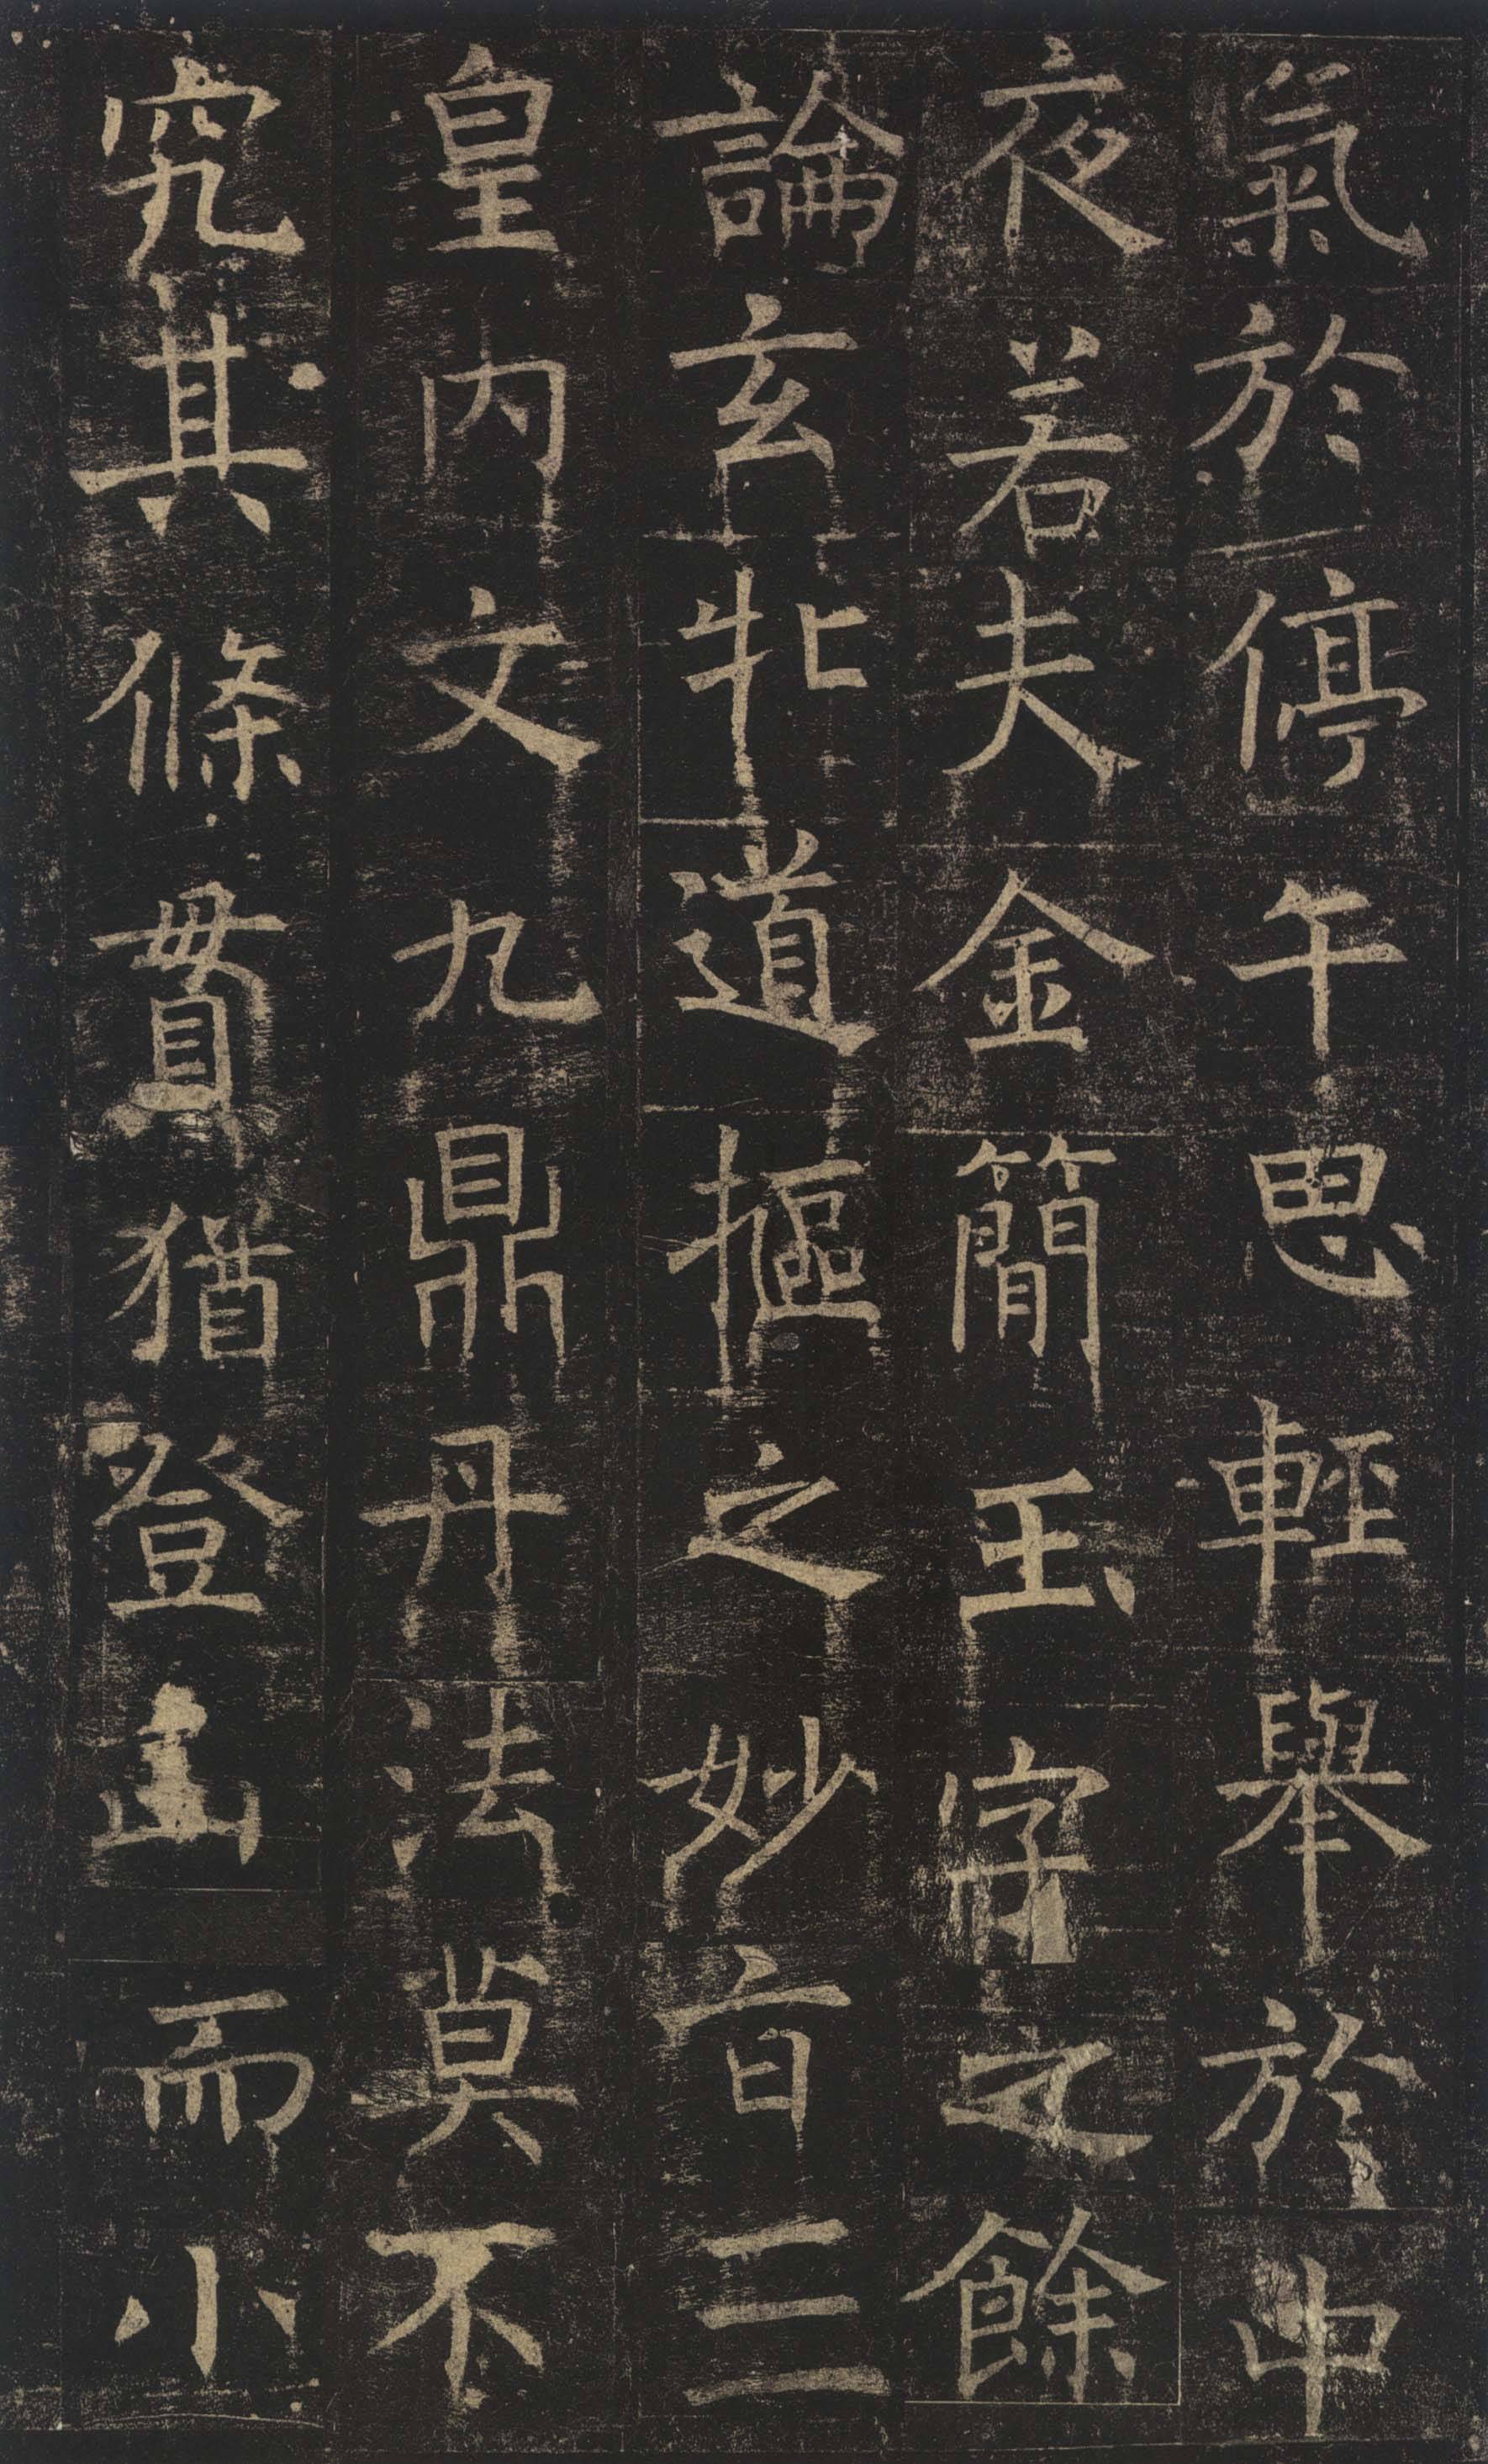 氣於停午思輕舉於中
夜若夫金簡玉字之餘
論玄牝道樞之妙旨三
皇內文九鼎丹法莫不
究其條貫猶登山而小